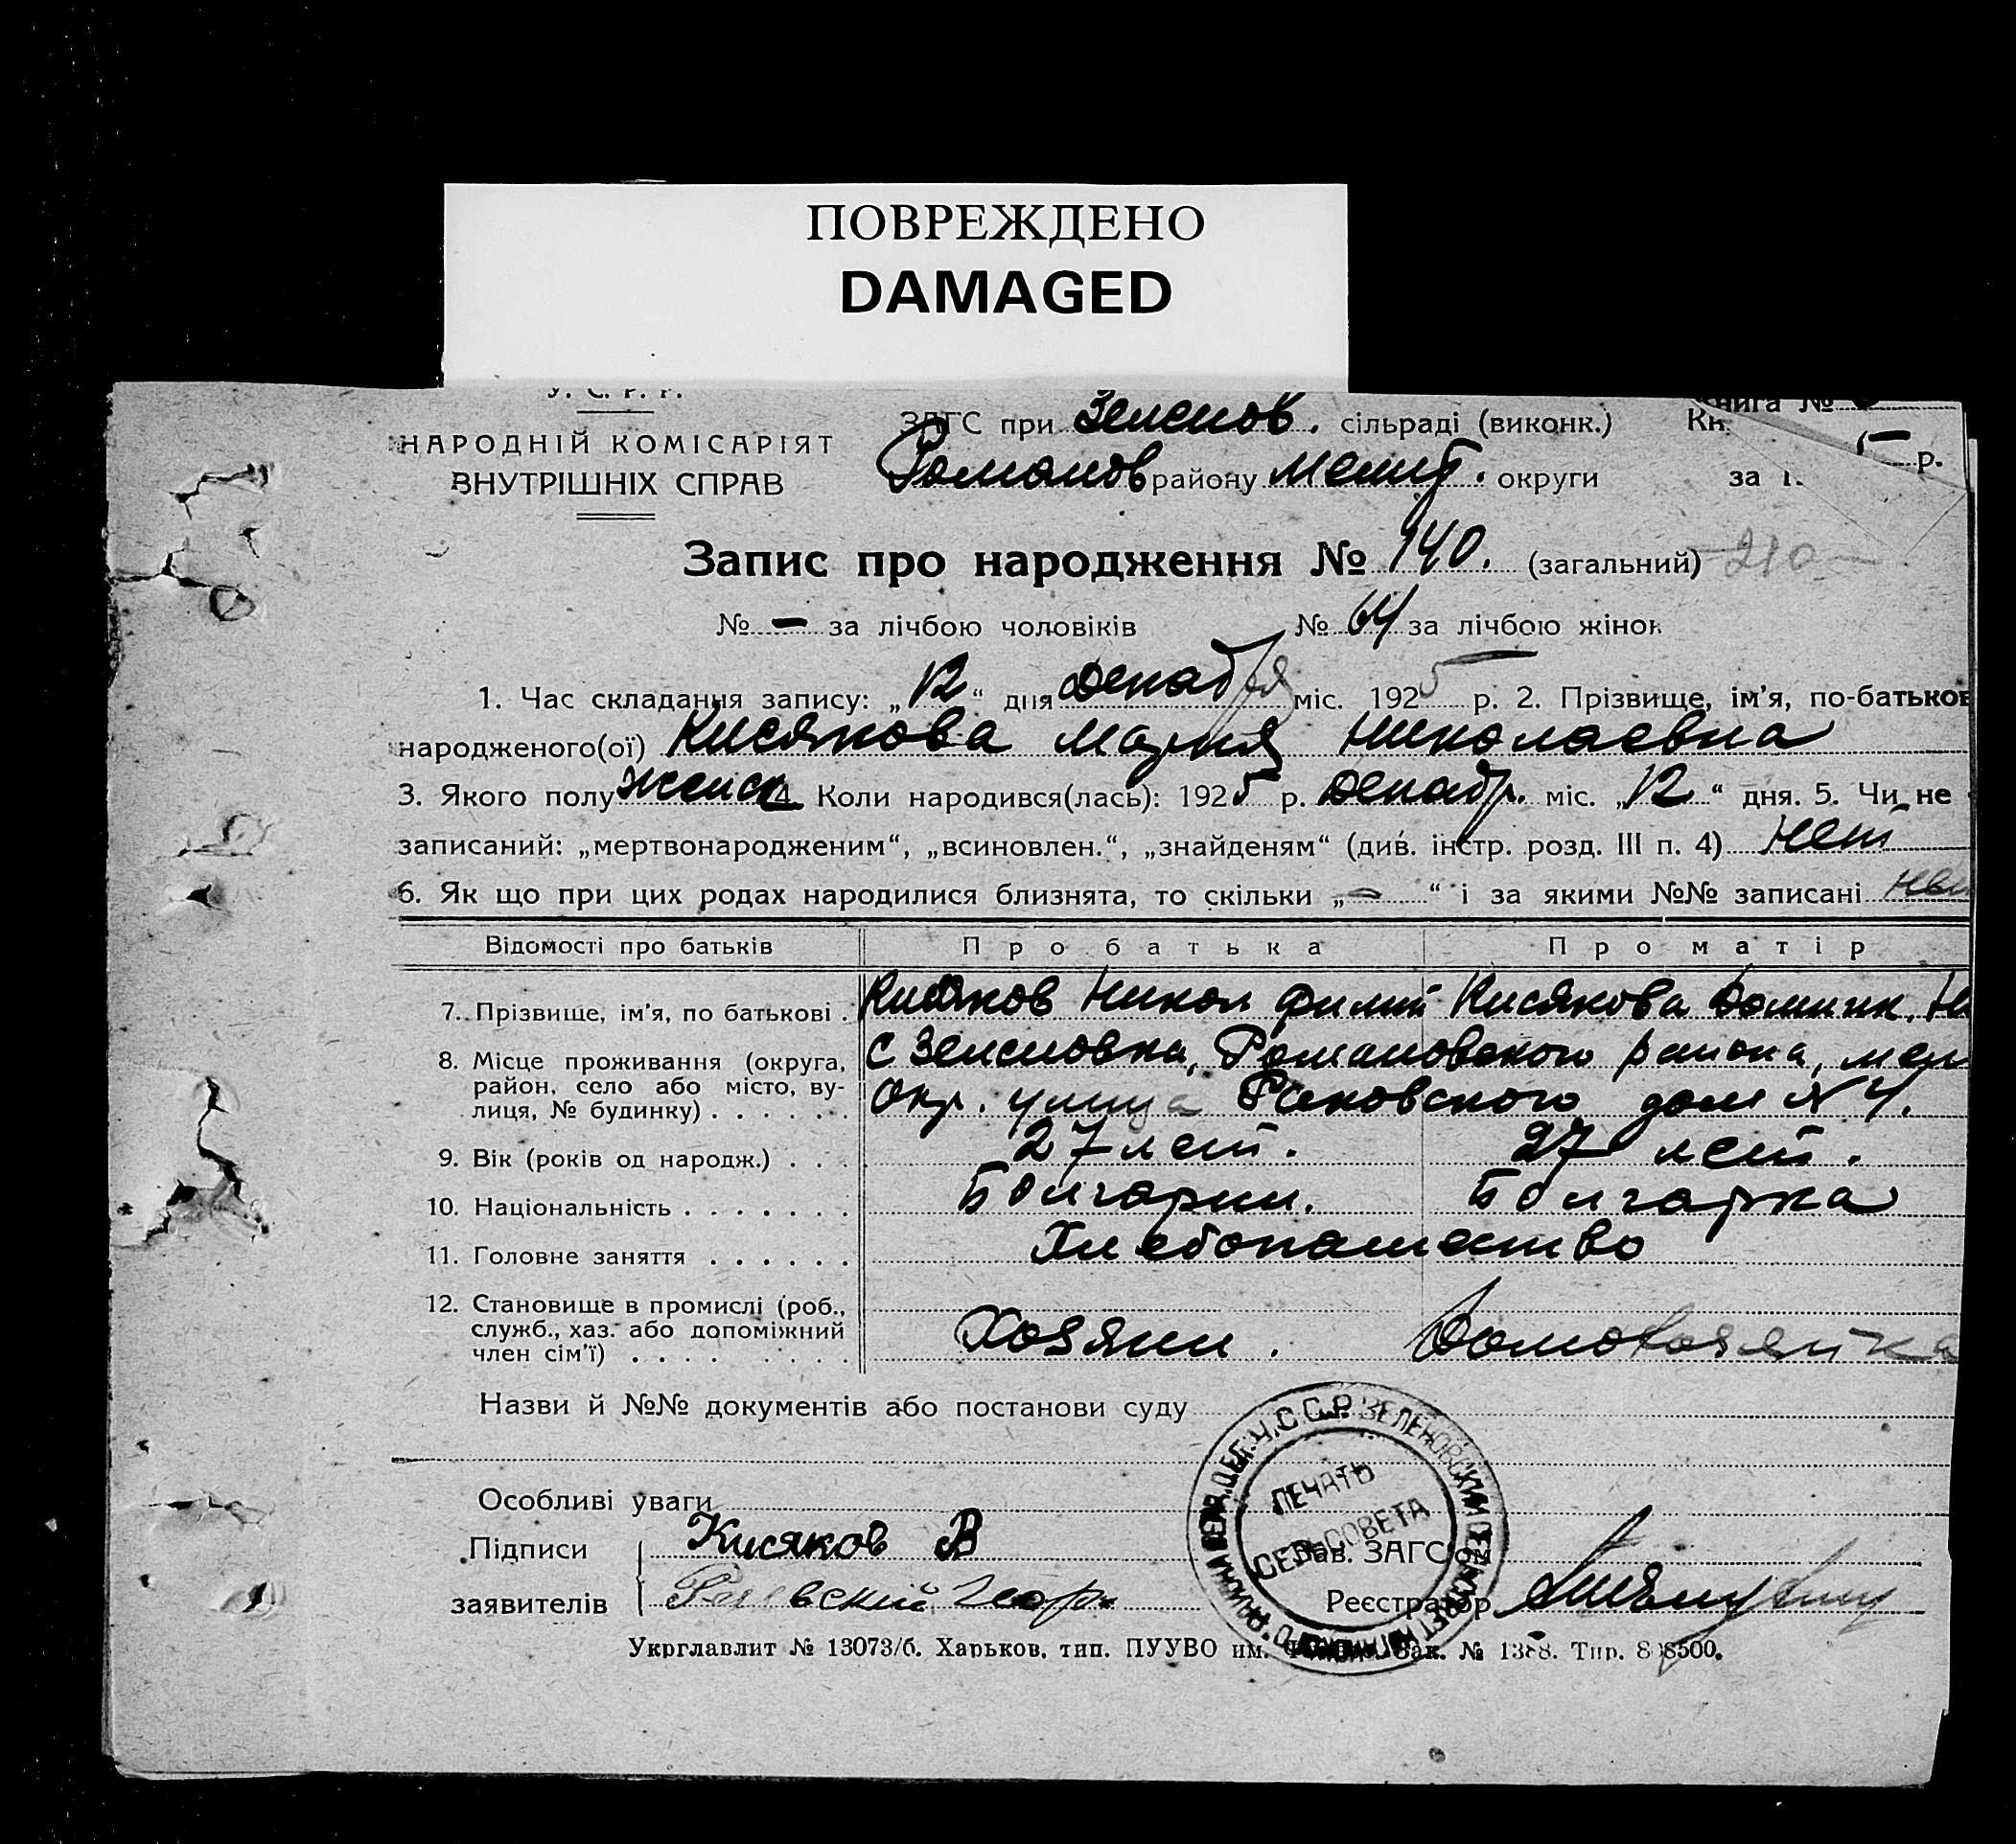 ПОВРЕЖДЕНО
DAMAGED
У. С. Р. Р.
НАРОДНІЙ КОМІСАРІЯТ
ВНУТРІШНІХ СПРАВ
ЗАГС при Зеленов. сільраді (виконк.)
Романов району Мелит. округи
Книга №
за 5 р.
Запис про народження № 140. (загальний) 210
№ – за лічбою чоловіків № 64 за лічбою жінок
1. Час складання запису: „12“ дня декабря міс. 1925 р. 2. Прізвище, ім'я, по-батьков
народженого(ої) Кисякова Мария Николаевна
3. Якого полу женск 4. Коли народився(лась): 1925 р. декабр. міс. „12“ дня. 5. Чи не
записаний: „мертвонародженим“, „всиновлен.“, „знайденям“ (див. інстр. розд. III п. 4) нет
6. Як що при цих родах народилися близнята, то скільки „–“ і за якими №№ записані
Відомості про батьків Про батька Про матір
7. Прізвище, ім'я, по батькові . Кисяков Никол Филип Кисякова Домник. Н
8. Місце проживання (округа, район, село або місто, вулиця, № будинку) . . . . . . с Зеленовка, Романовского района, мел
Окр. улица Раковского дом № 4.
9. Вік (років од народж.) . . . 27 лет. 27 лет.
10. Національність . . . . . . . Болгарин. Болгарка
11. Головне заняття . . . . . . Хлебопашество
12. Становище в промислі (роб., служб., хаз. або допоміжний член сім'ї) . . . . . . . . Хозяин. Домохозяйка
Назви й №№ документів або постанови суду
Особливі уваги
Підписи Кисяков В
заявителів Геор.
Зав. ЗАГС'ом
Реєстратор
У.С.С.Р. ЗЕЛЕНОВСКИЙ СЕЛЬСОВЕТ
ПЕЧАТЬ
СЕЛЬСОВЕТА
Укрглавлит № 13073/б. Харьков, тип. ПУУВО им. Зак. № 1388. Тир. 500.